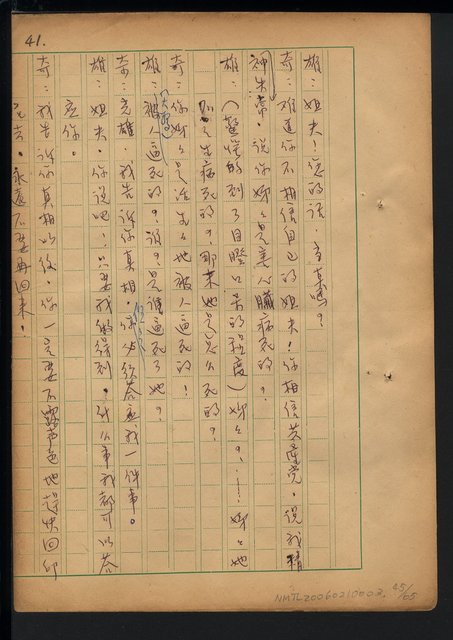 41.
雄：姐夫！您的話，當真嗎？
奇：难道你不相信自己的姐夫！你相信共產党，說我精
神失常。說你姊々是害心臟病死的？
雄：（驚愕的到了目瞪口呆的程度）姊々？……姊々她
不是生病死的？那末她是怎么死的？
奇：你姊々是活生々地被人逼死的！
雄：被人逼死的？誰？是誰逼死了她？
奇：克雄，我告诉你真相，你必须答应我一件事。
雄：姐夫，你说吧！只要我做得到，什么事我都可以答
应你。
奇：我告诉你真相以後，你一定要不露声色地趕快回印
尼去。永遠不要再回来！
NMTL20060210003
45/65